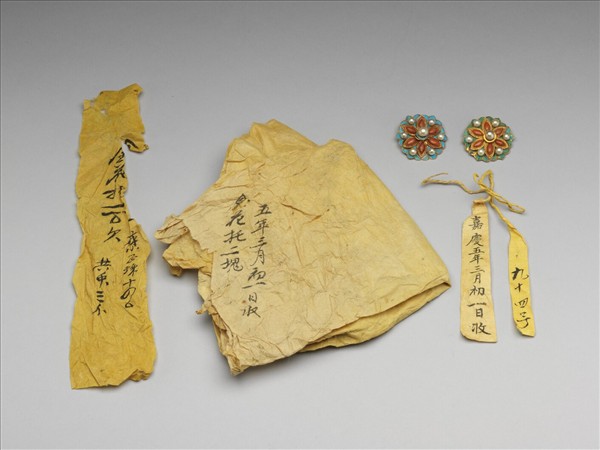 金花托一
共重三
五年三月初一日收
金花托二塊
嘉慶五年三月初一日收
九十四号